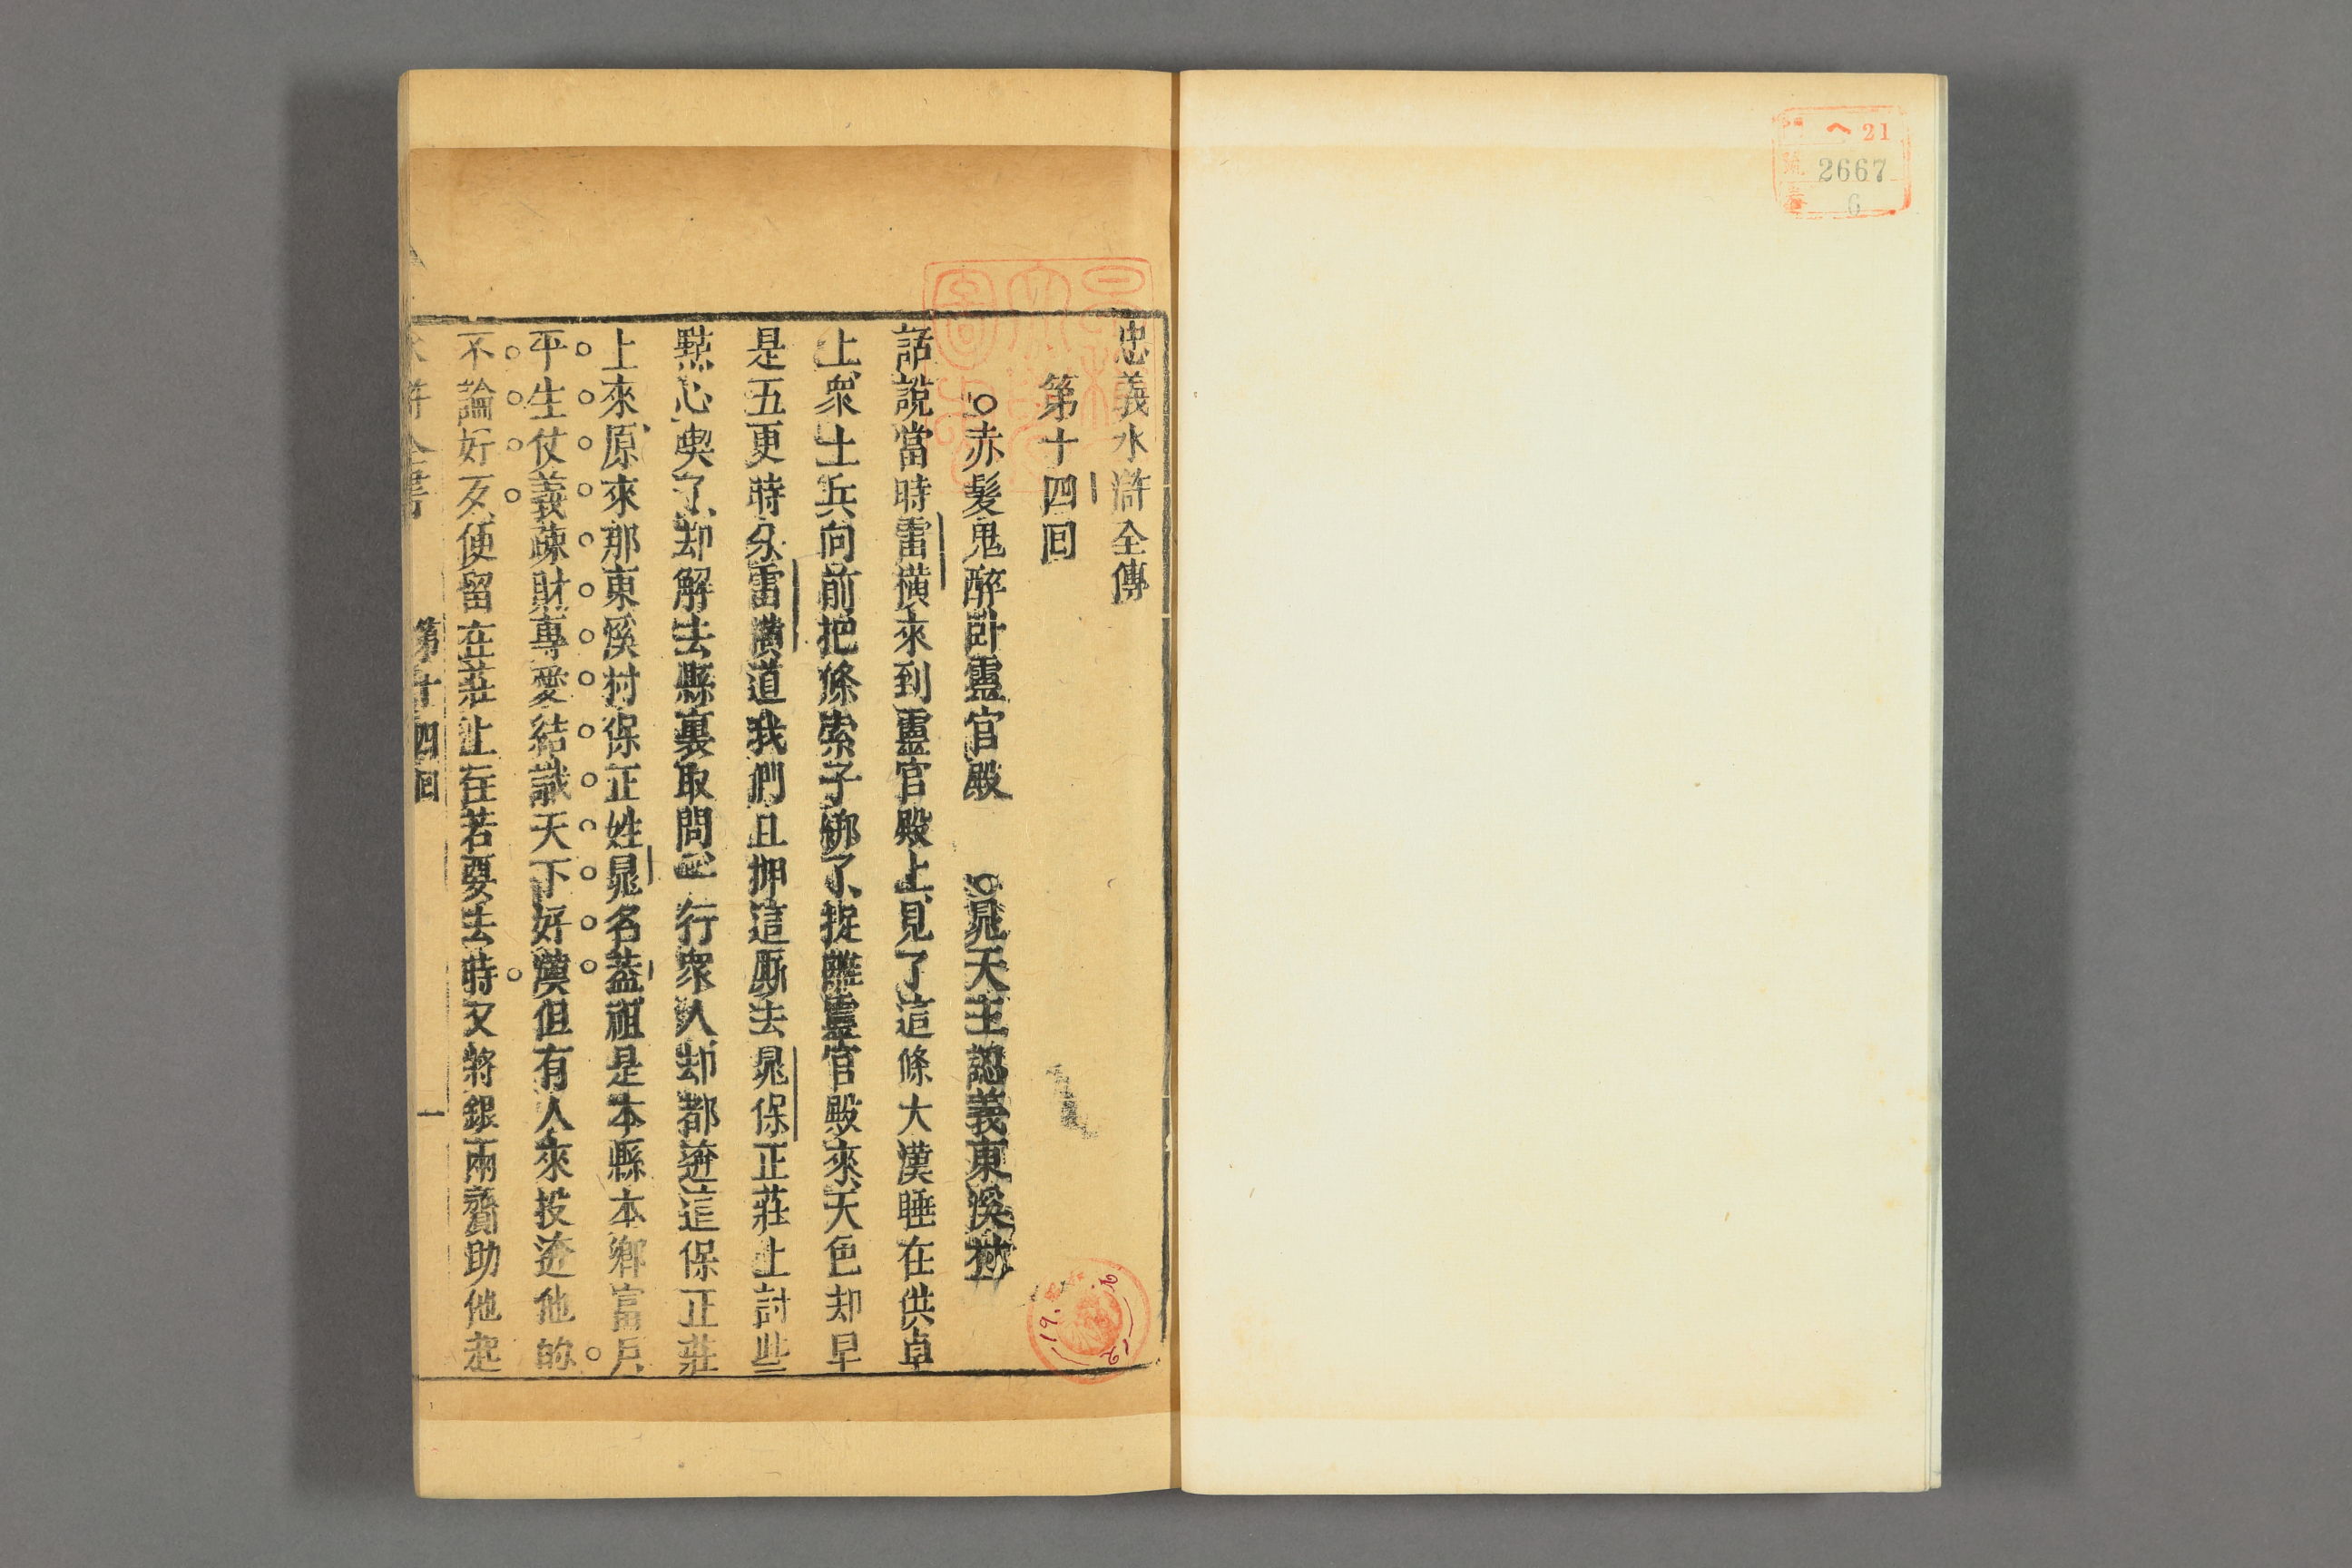 へ 21
號 2667
6
忠義水滸全傳
第十四囘
○赤髮鬼醉卧靈官殿 ○晁天王認義東溪村
話說當時雷橫來到靈官殿上見了這條大漢睡在供卓
上衆土兵向前把條索子綁了捉離靈官殿來天色却早
是五更時分雷橫道我們且押這厮去晁保正莊上討些
點心喫了却解去縣裏取問一行衆人却都遊這保正莊
上來原來那東溪村保正姓晁名葢祖是本縣本鄉富戶
平生仗義疎財專愛結識天下好漢但有人來投遊他的
不論好歹便留在莊上住若要去時又將銀兩齎助他起
水滸全書 第十四囘 一